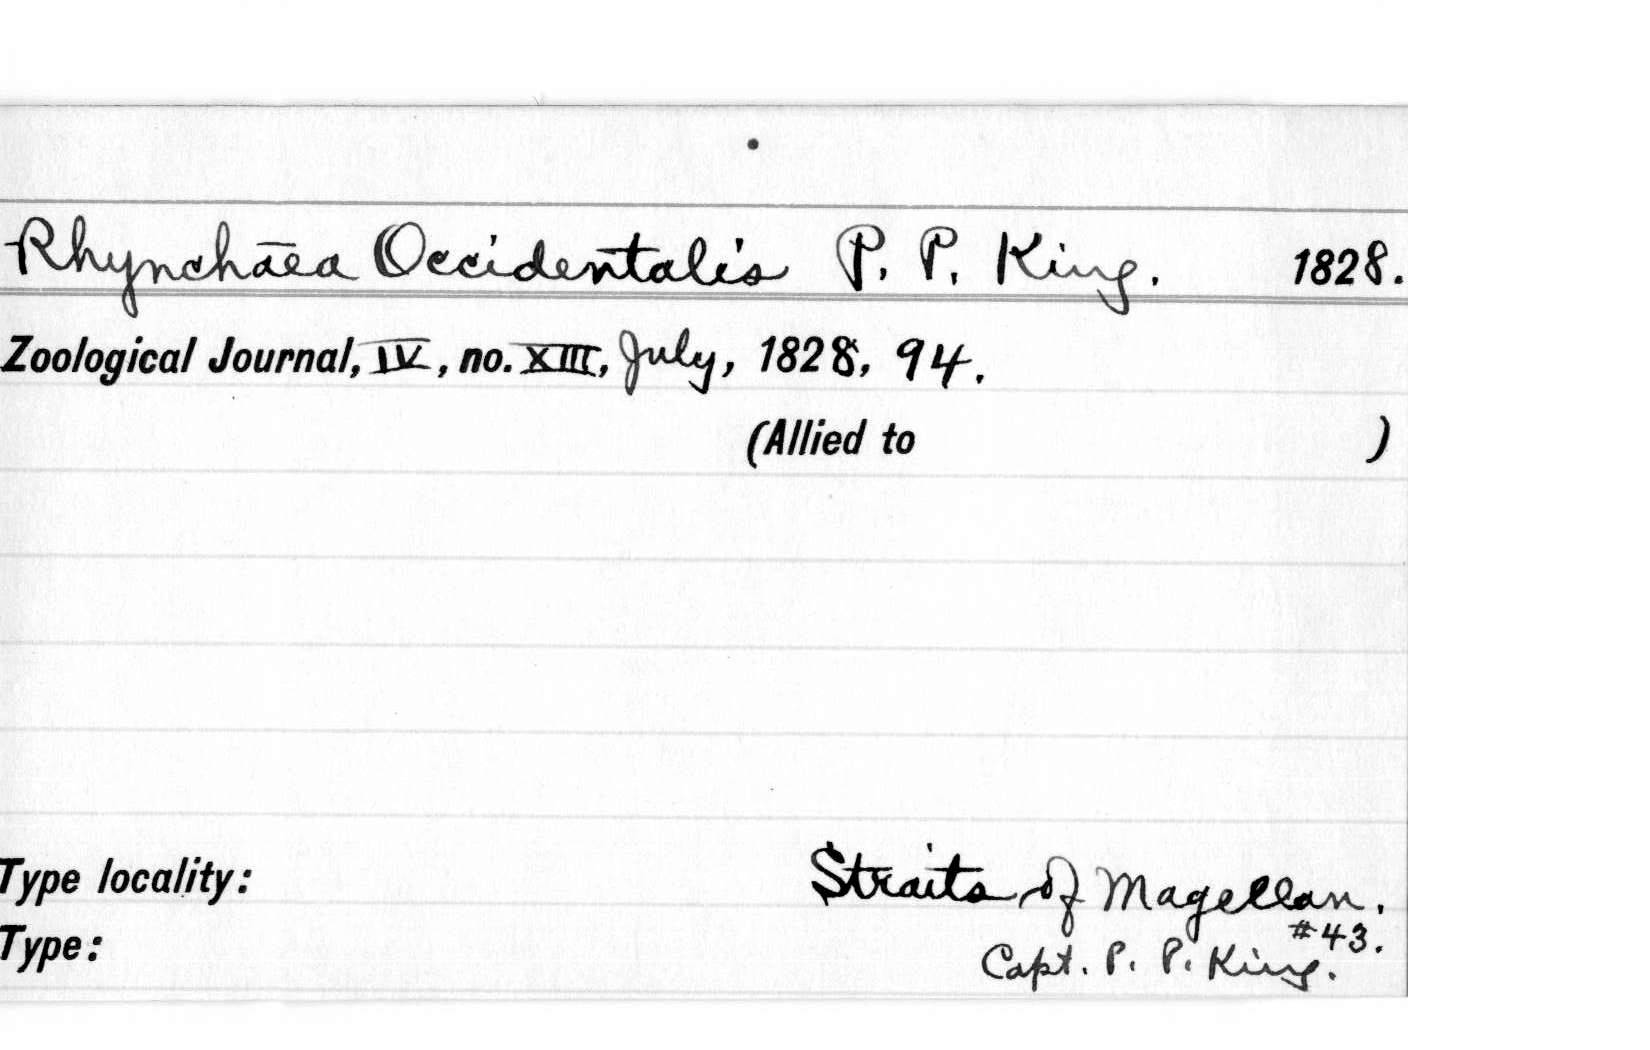 Rhynchāea Occidentalis P. P. King. 1828.
Zoological Journal, IV, no. XIII, July, 1828, 94.
(Allied to )
Type locality: Straits of Magellan.
#43.
Type: Capt. P. P. King.